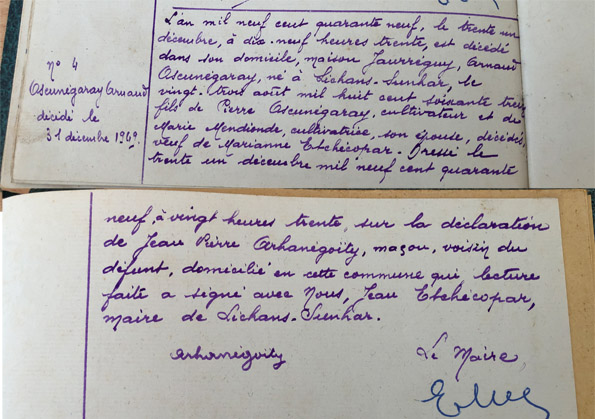 L'an mil neuf cent quarante neuf, le trente un
décembre, à dix-neuf heures trente, est décédé
dans son domicile, maison Jaurréguy, Arnaud
Oscunégaray, né à Lichans-Sunhar, le
vingt-trois août mil huit cent soixante treize
fils de Pierre Oscunégaray, cultivateur et de
Marie Mendionde, cultivatrice, son épouse, décédés,
veuf de Marianne Etchécopar. Dressé le
trente un décembre mil neuf cent quarante
No 4
Oscunégaray Arnaud
décédé le
31 décembre 1949.
neuf, à vingt heures trente, sur la déclaration
de Jean Pierre Arhanégoity, maçon, voisin du
défunt, domicilié en cette commune qui lecture
faite a signé avec Nous, Jean Etchécopar,
maire de Lichans-Sunhar.
Arhanégoity
Le Maire